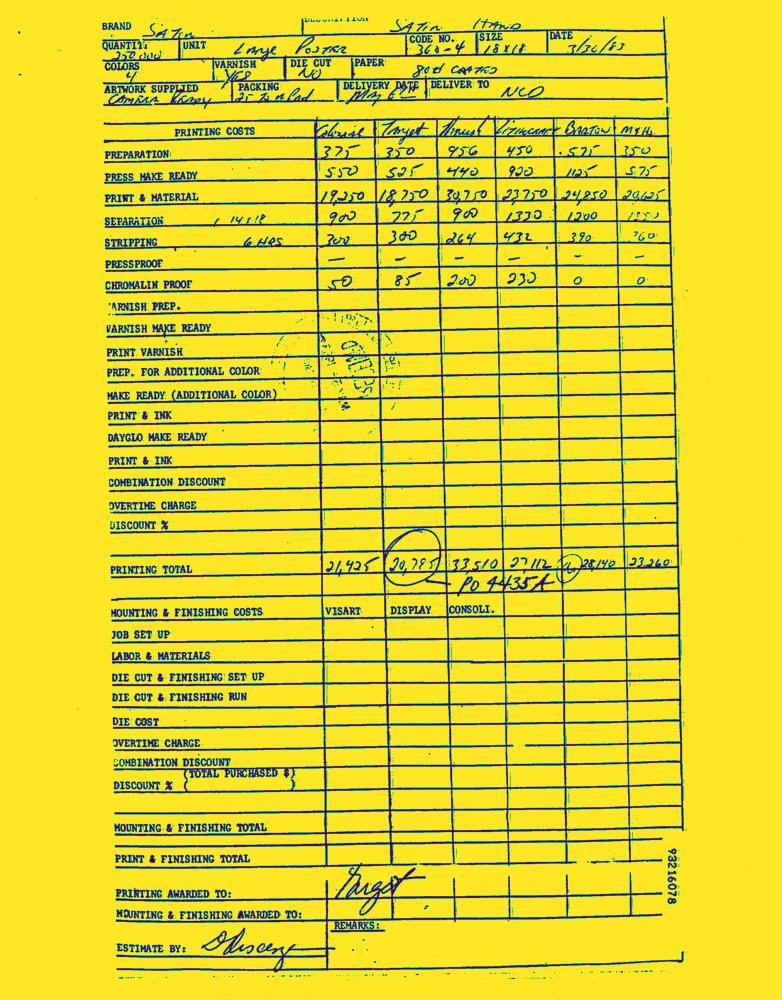 BRAND SATIN DESCRIPTION SATIN HAND
QUANTITY 250,000 UNIT Large Poster CODE NO. 360-4 SIZE 18x18 DATE 3/30/83
COLORS 4 VARNISH YES DIE CUT NO PAPER 80# COATED
ARTWORK SUPPLIED Camera Ready PACKING 25 To a Pad DELIVERY DATE May 6th DELIVER TO NCO
PRINTING COSTS Colonial Target Thrust Lithocraft BARTON M&H
PREPARATION 375 350 956 450 575 350
PRESS MAKE READY 550 525 440 920 1125 575
PRINT & MATERIAL 19,250 18,750 30,750 23,750 24,850 20,625
SEPARATION 1 14x18 900 775 900 1330 1200 1350
STRIPPING 6 HRS 300 300 264 432 390 360
PRESSPROOF - - - - - -
CHROMALIN PROOF 50 85 200 230 0 0
VARNISH PREP.
VARNISH MAKE READY
PRINT VARNISH
PREP. FOR ADDITIONAL COLOR
MAKE READY (ADDITIONAL COLOR)
PRINT & INK
DAYGLO MAKE READY
PRINT & INK
COMBINATION DISCOUNT
OVERTIME CHARGE
DISCOUNT %
PRINTING TOTAL 21,425 20,785 33,510 27,112 28,140 23,260
PO 4435A
MOUNTING & FINISHING COSTS VISART DISPLAY CONSOLI.
JOB SET UP
LABOR & MATERIALS
DIE CUT & FINISHING SET UP
DIE CUT & FINISHING RUN
DIE COST
OVERTIME CHARGE
COMBINATION DISCOUNT
(TOTAL PURCHASED $)
DISCOUNT % ( )
MOUNTING & FINISHING TOTAL
PRINT & FINISHING TOTAL
93216078
PRINTING AWARDED TO: Target
MOUNTING & FINISHING AWARDED TO:
REMARKS:
ESTIMATE BY: